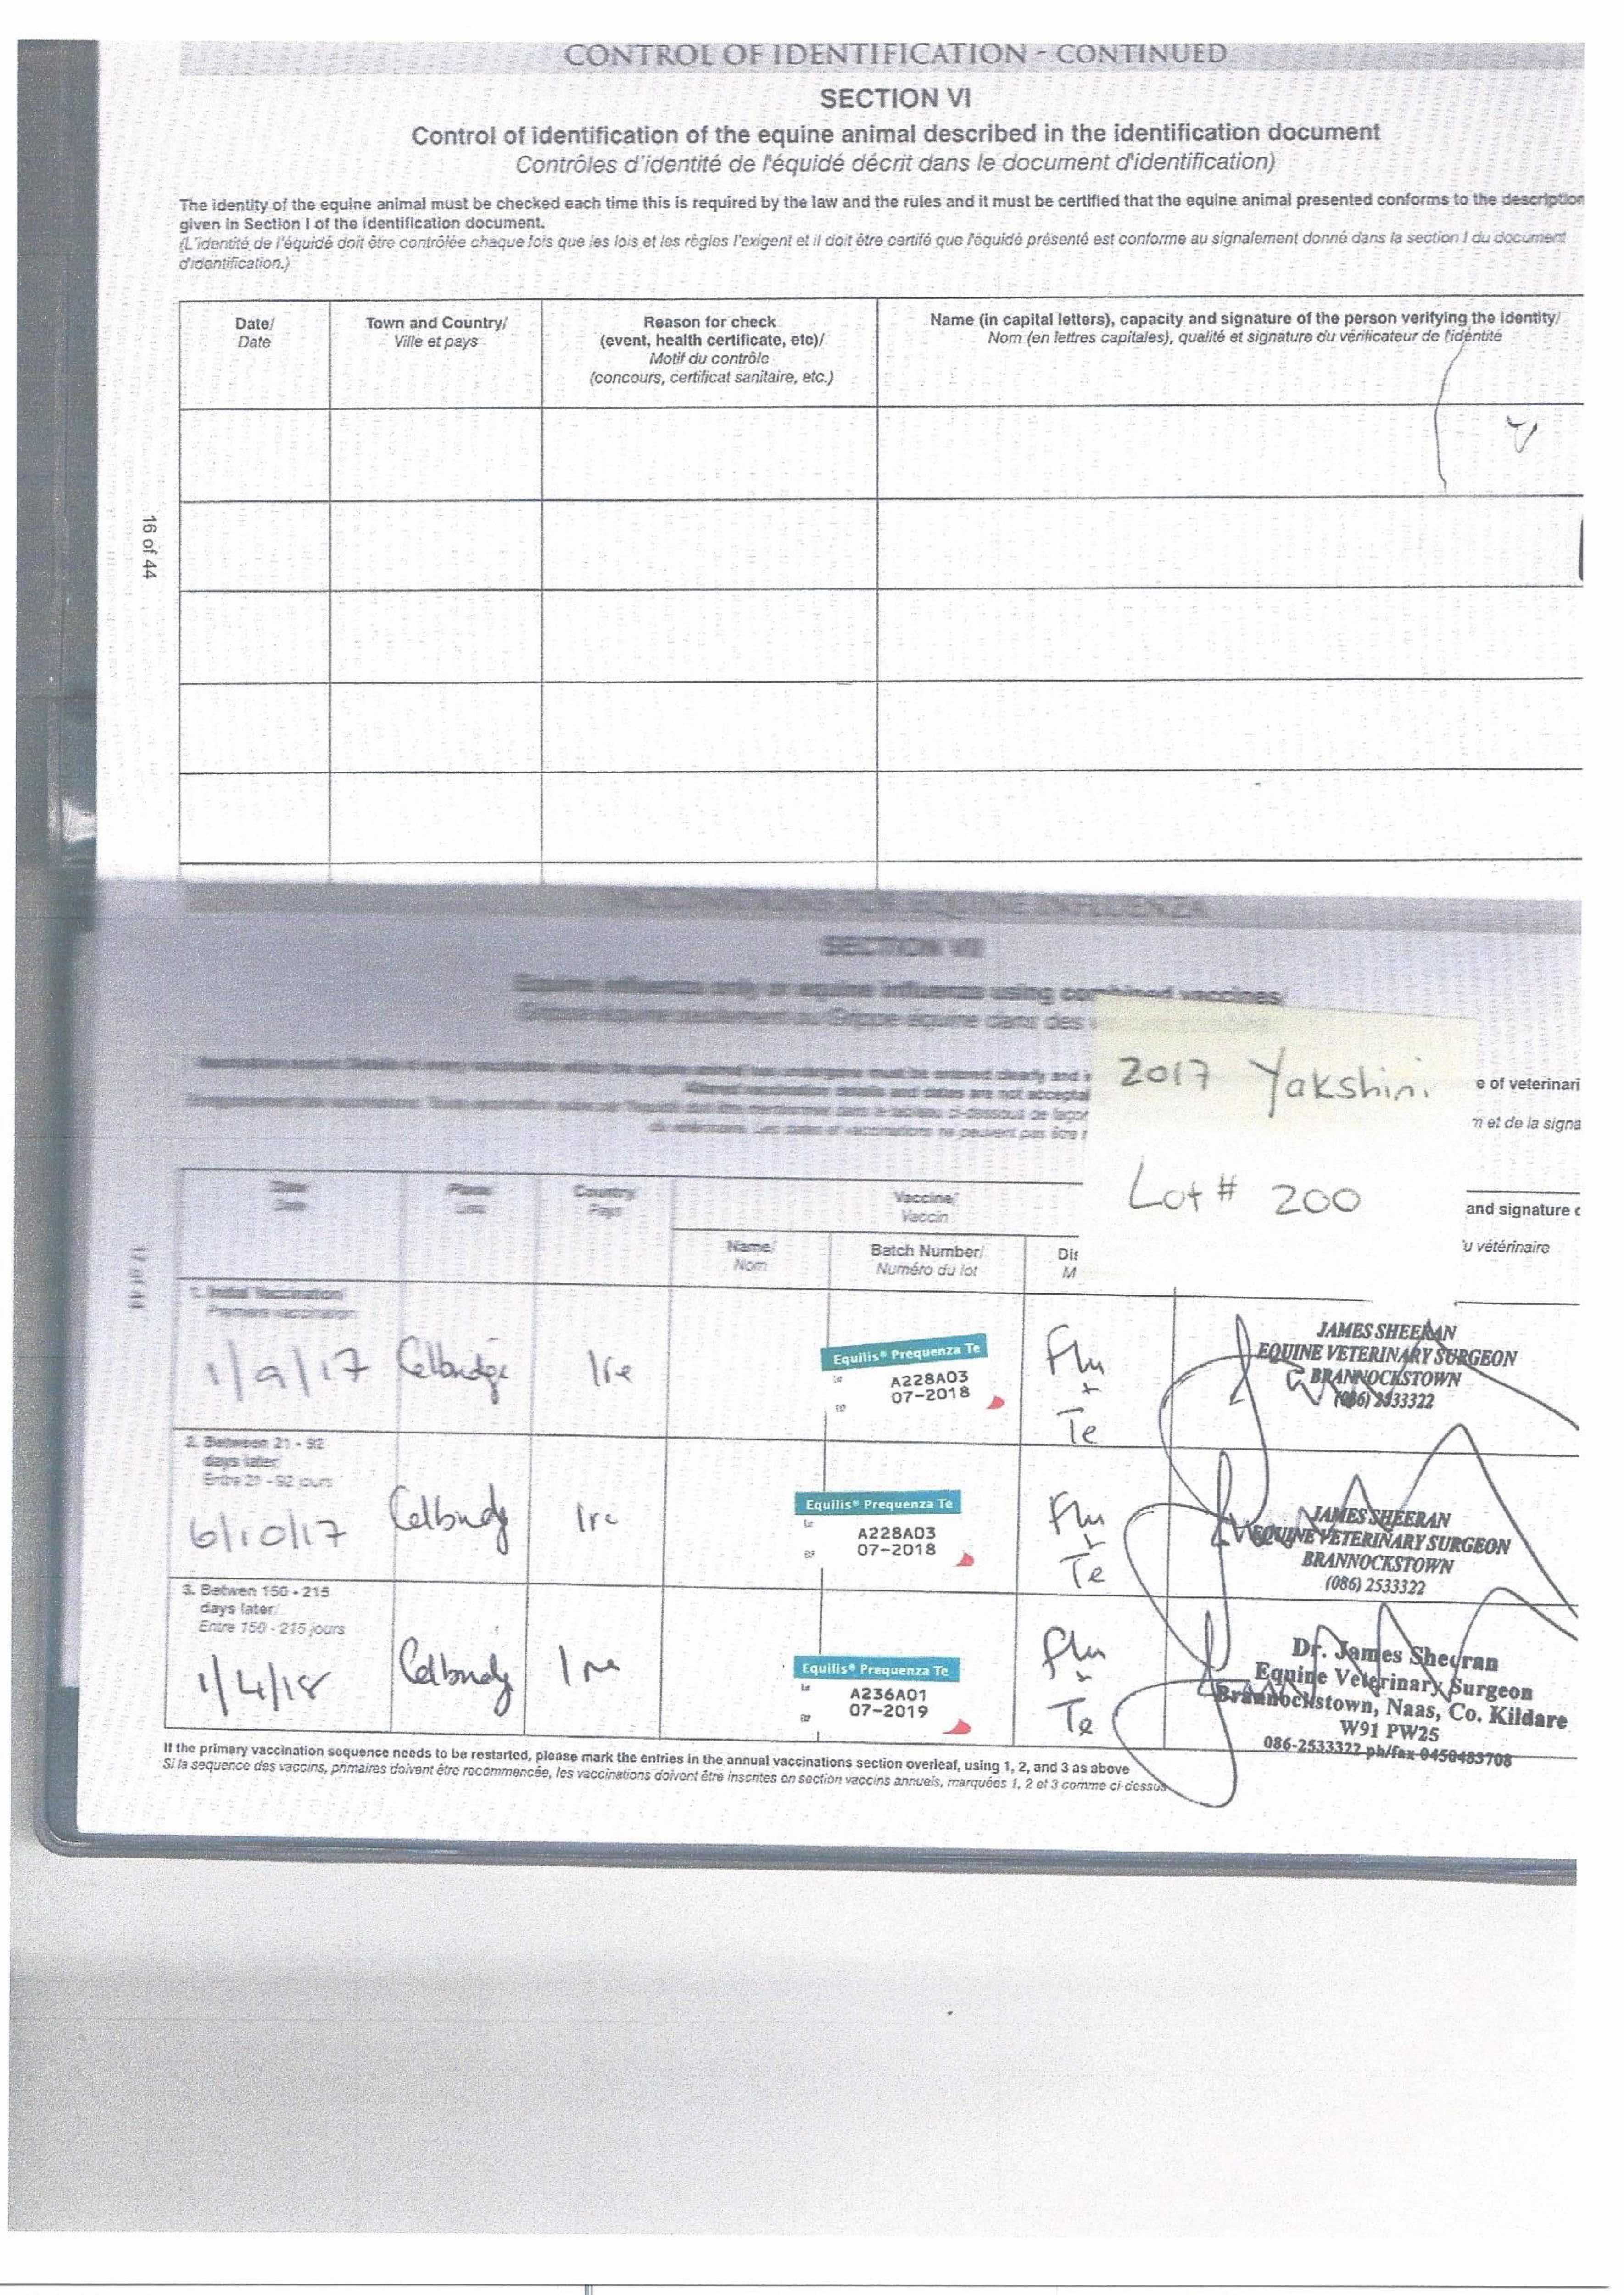 CONTROL OF IDENTIFICATION - CONTINUED
SECTION VI
Control of identification of the equine animal described in the identification document
Contrôles d'identité de l'équidé décrit dans le document d'identification)
The identity of the equine animal must be checked each time this is required by the law and the rules and it must be certified that the equine animal presented conforms to the description
given in Section I of the identification document.
(L'identité de l'équidé doit être contrôlée chaque fois que les lois et les règles l'exigent et il doit être certifé que l'équidé présenté est conforme au signalement donné dans la section I du document
d'identification.)
Date/
Date
Town and Country/
Ville et pays
Reason for check
(event, health certificate, etc)/
Motif du contrôle
(concours, certificat sanitaire, etc.)
Name (in capital letters), capacity and signature of the person verifying the identity/
Nom (en lettres capitales), qualité et signature du vérificateur de l'identité
16 of 44
VACCINATIONS FOR EQUINE INFLUENZA
SECTION VII
Equine influenza only or equine influenza using combined vaccines
Grippe équine seulement ou Grippe équine dans des
Vaccination record Details of every vaccination which the equine animal has undergone must be entered clearly and
e of veterinari
Altered vaccination details and dates are not acceptal
n et de la signa
du vétérinaire. Les dates et vaccinations ne peuvent pas être
2017 Yakshini
Lot # 200
Date/
Date
Place/
Lieu
Country/
Pays
Vaccine/
Vaccin
and signature c
u vétérinaire
Name/
Nom
Batch Number/
Numéro du lot
Dis
M
17 of 44
1. Initial Vaccination/
Premiere vaccination
1/9/17 Celbridge Ire
Equilis® Prequenza Te
A228A03
07-2018
Flu
+
Te
JAMES SHEERAN
EQUINE VETERINARY SURGEON
BRANNOCKSTOWN
(086) 2533322
2. Between 21 - 92
days later/
Entre 21 - 92 jours
6/10/17 Celbridge Ire
Equilis® Prequenza Te
A228A03
07-2018
Flu
+
Te
JAMES SHEERAN
EQUINE VETERINARY SURGEON
BRANNOCKSTOWN
(086) 2533322
3. Betwen 150 - 215
days later/
Entre 150 - 215 jours
1/4/18 Celbridge Ire
Equilis® Prequenza Te
A236A01
07-2019
Flu
+
Te
Dr. James Sheeran
Equine Veterinary Surgeon
Brannockstown, Naas, Co. Kildare
W91 PW25
086-2533322 ph/fax 0450483708
If the primary vaccination sequence needs to be restarted, please mark the entries in the annual vaccinations section overleaf, using 1, 2, and 3 as above
Si la sequence des vaccins, primaires doivent être recommencée, les vaccinations doivent être inscrites en section vaccins annuels, marquées 1, 2 et 3 comme ci-dessus